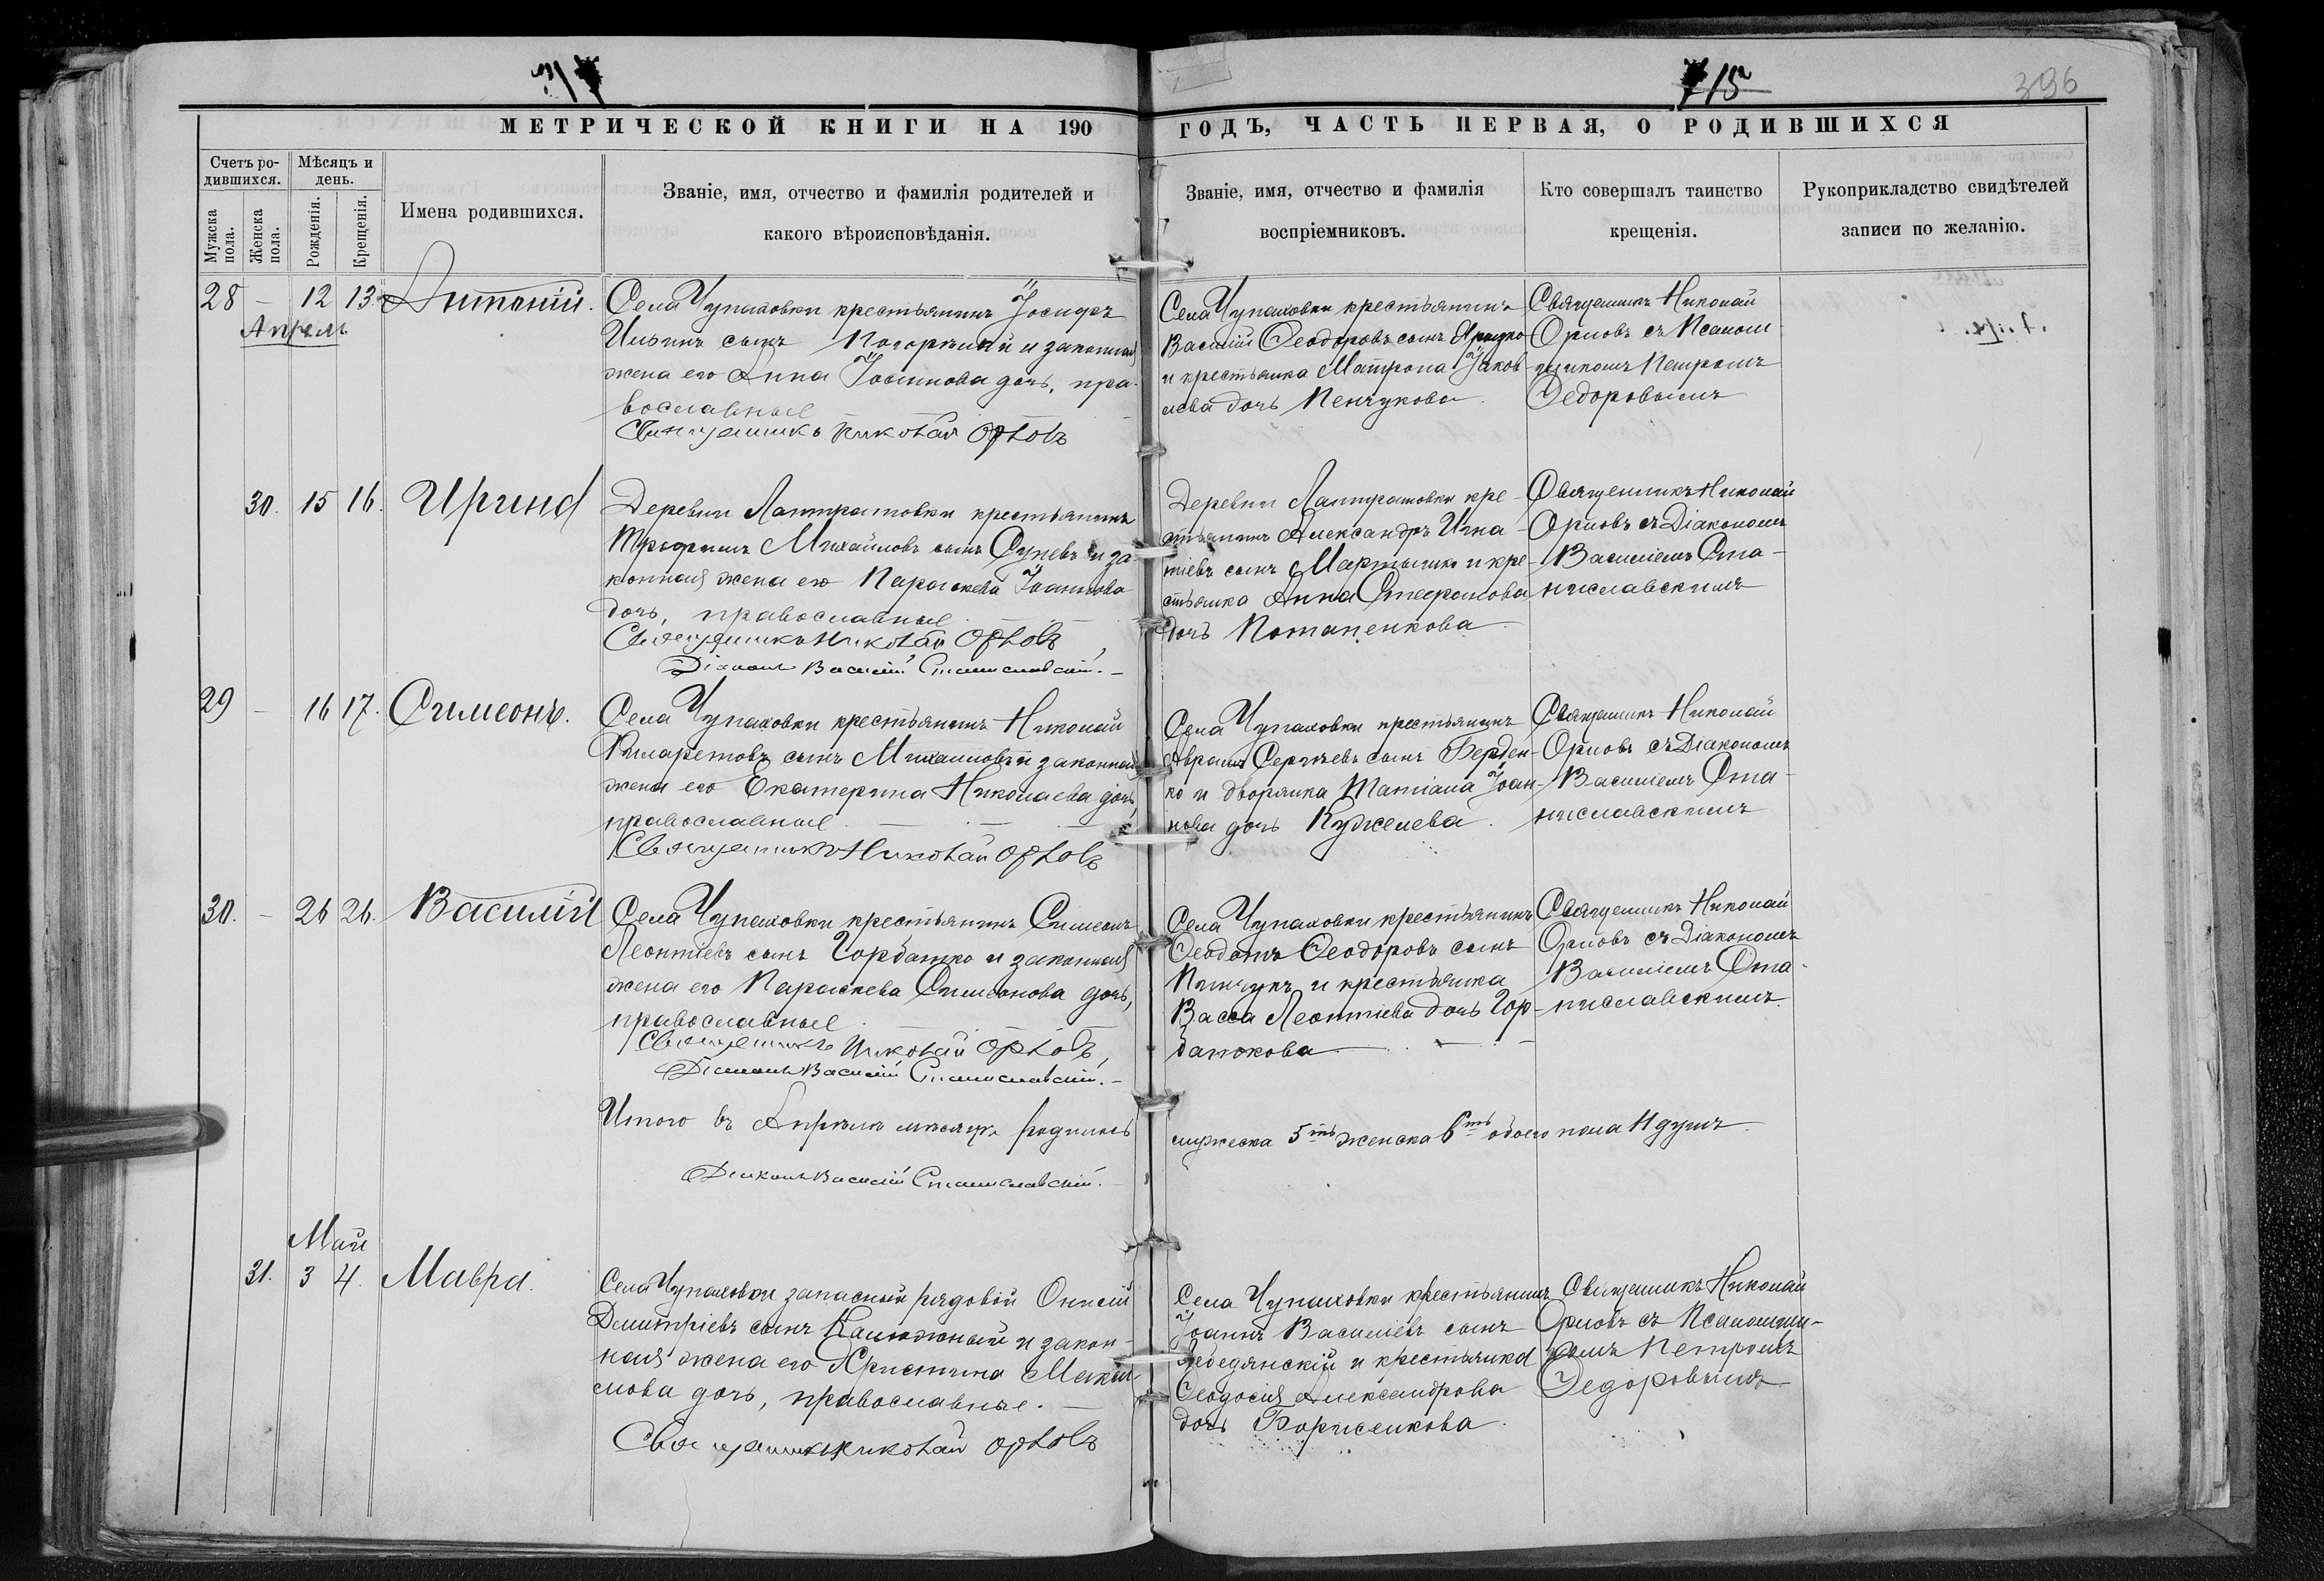 715
396
МЕТРИЧЕСКОЙ КНИГИ НА 190
ГОДЪ, ЧАСТЬ ПЕРВАЯ, О РОДИВШИХСЯ
Счетъ ро-
дившихся.
Мѣсяцъ и
день.
Мужска
пола.
Женска
пола.
Рожденія.
Крещенія.
Имена родившихся.
Званіе, имя, отчество и фамилія родителей и
какого вѣроисповѣданія.
Званіе, имя, отчество и фамилія
воспріемниковъ.
Кто совершалъ таинство
крещенія.
Рукоприкладство свидѣтелей
записи по желанію.
28 - 12 13 Антоній.
Апрель
Села Чупаховки крестьянинъ Іосифъ
Ильинъ сынъ Погорѣлый и законная
жена его Анна Іоаннова дочь, пра-
вославные
Священникъ Николай Орловъ
Села Чупаховки крестьянинъ
Василій Ѳеодоровъ сынъ
и крестьянка Матрона Іаков-
лева дочь Пенчукова
Священникъ Николай
Орловъ съ Псалом-
щикомъ Петромъ
Федоровымъ
30. 15 16. Ирина
Деревни Лантратовки крестьянинъ
Трофимъ Михайловъ сынъ Супевъ и за-
конная жена его Параскева Іоаннова
дочь, православные
Священникъ Николай Орловъ
Діаконъ Василій Станиславскій.
Деревни Лантратовки кре-
стьянинъ Александръ Игна-
тіевъ сынъ Мартынко и кре-
стьянка Анна Стефанова
дочь Потапенкова
Священникъ Николай
Орловъ съ Діакономъ
Василіемъ Ста-
ниславскимъ
29 - 16 17. Симеонъ.
Села Чупаховки крестьянинъ Николай
Филаретовъ сынъ Михайловъ и законная
жена его Екатерина Николаева дочь,
православные
Священникъ Николай Орловъ
Села Чупаховки крестьянинъ
Аврамъ Сергѣевъ сынъ Берден-
ко и дворянка Татіана Іоан-
нова дочь Кужелева.
Священникъ Николай
Орловъ съ Діакономъ
Василіемъ Ста-
ниславскимъ
30. - 26 26. Василій
Села Чупаховки крестьянинъ Симеонъ
Леонтіевъ сынъ Горбатко и законная
жена его Параскева Симеонова дочь,
православные
Священникъ Николай Орловъ,
Діаконъ Василій Станиславскій.
Села Чупаховки крестьянинъ
Ѳеодотъ Ѳеодоровъ сынъ
Пинчукъ и крестьянка
Васса Леонтіева дочь Гор-
батокова
Священникъ Николай
Орловъ съ Діакономъ
Василіемъ Ста-
ниславскимъ.
Итого въ Апрѣлѣ мѣсяцѣ родилось
мужеска 5ть женска 6ть обоего пола 11 душъ.
Діаконъ Василій Станиславскій.
Май
31. 3 4. Мавра.
Села Чупаховки запасный рядовой Онисій
Димитріевъ сынъ Калюжный и закон-
ная жена его Христина Макси-
мова дочь, православные.
Священникъ Николай Орловъ
Села Чупаховки крестьянинъ
Іоаннъ Василіевъ сынъ
Лебедянскій и крестьянка
Ѳеодосія Александрова
дочь Борисенкова.
Священникъ Николай
Орловъ съ Псаломщи-
комъ Петромъ
Федоровымъ